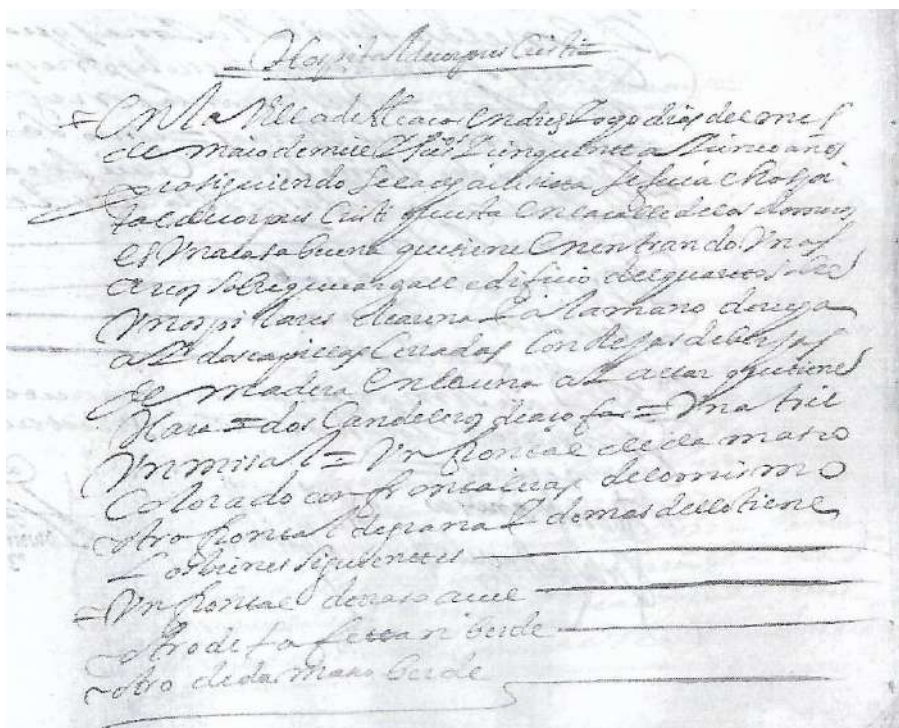 Hospital de corpus Cristi
= En la Villa de en diez y ocho dias del mes
de maio de mill y seis y cinquenta y cinco años
prosiguiendo se la bisita se fue a el hospi
tal de corpus Cristi questa en la calle de los
es Una casa buena que tiene en entrando Unos
arcos sobre que carga el edificio del quarto sobre
Unos pilares y a la mano derecha
ai dos capillas Cerradas Con Rejas de berjas
de madera en la una ai altar que tiene
= dos Candeleros = Un atril
Un misal = Un frontal de damasco
Colorado con frontaleras de lo mismo
otro frontal de grana y demas desto tiene
Los bienes siguientes
= Un frontal de raso açul
otro de tafettan berde
otro de damasco berde